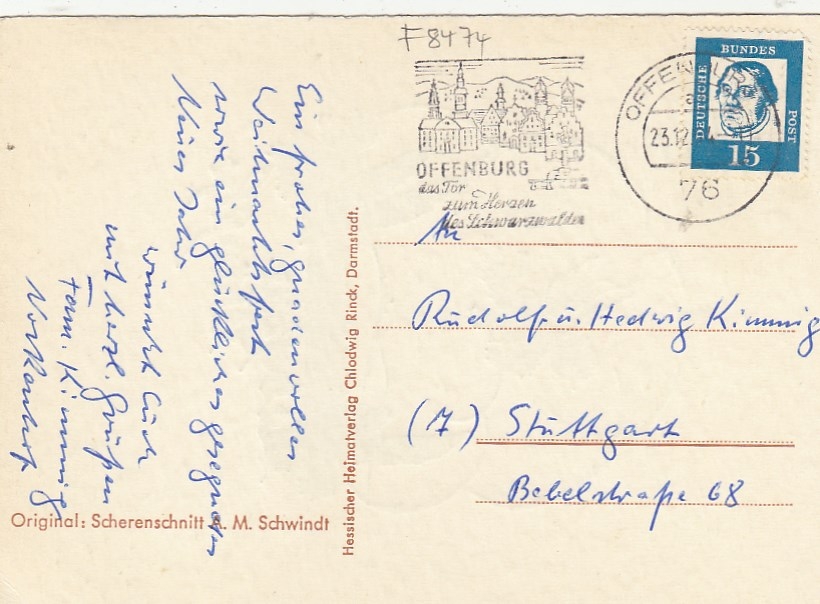 F8474
OFFENBURG
das Tor
zum Herzen
des Schwarzwaldes
OFFENBURG
a
23.12.
76
BUNDES
DEUTSCHE
POST
15
Ein frohes, gnadenvolles
Weihnachtsfest
sowie ein glückliches gesegnetes
Neues Jahr
wünscht Euch
mit herzl. Grüßen
Fam. Kimmig
An
Rudolf u. Hedwig Kimmig
(7) Stuttgart
Bebelstraße 68
Hessischer Heimatverlag Chlodwig Rinck, Darmstadt.
Original: Scherenschnitt A. M. Schwindt